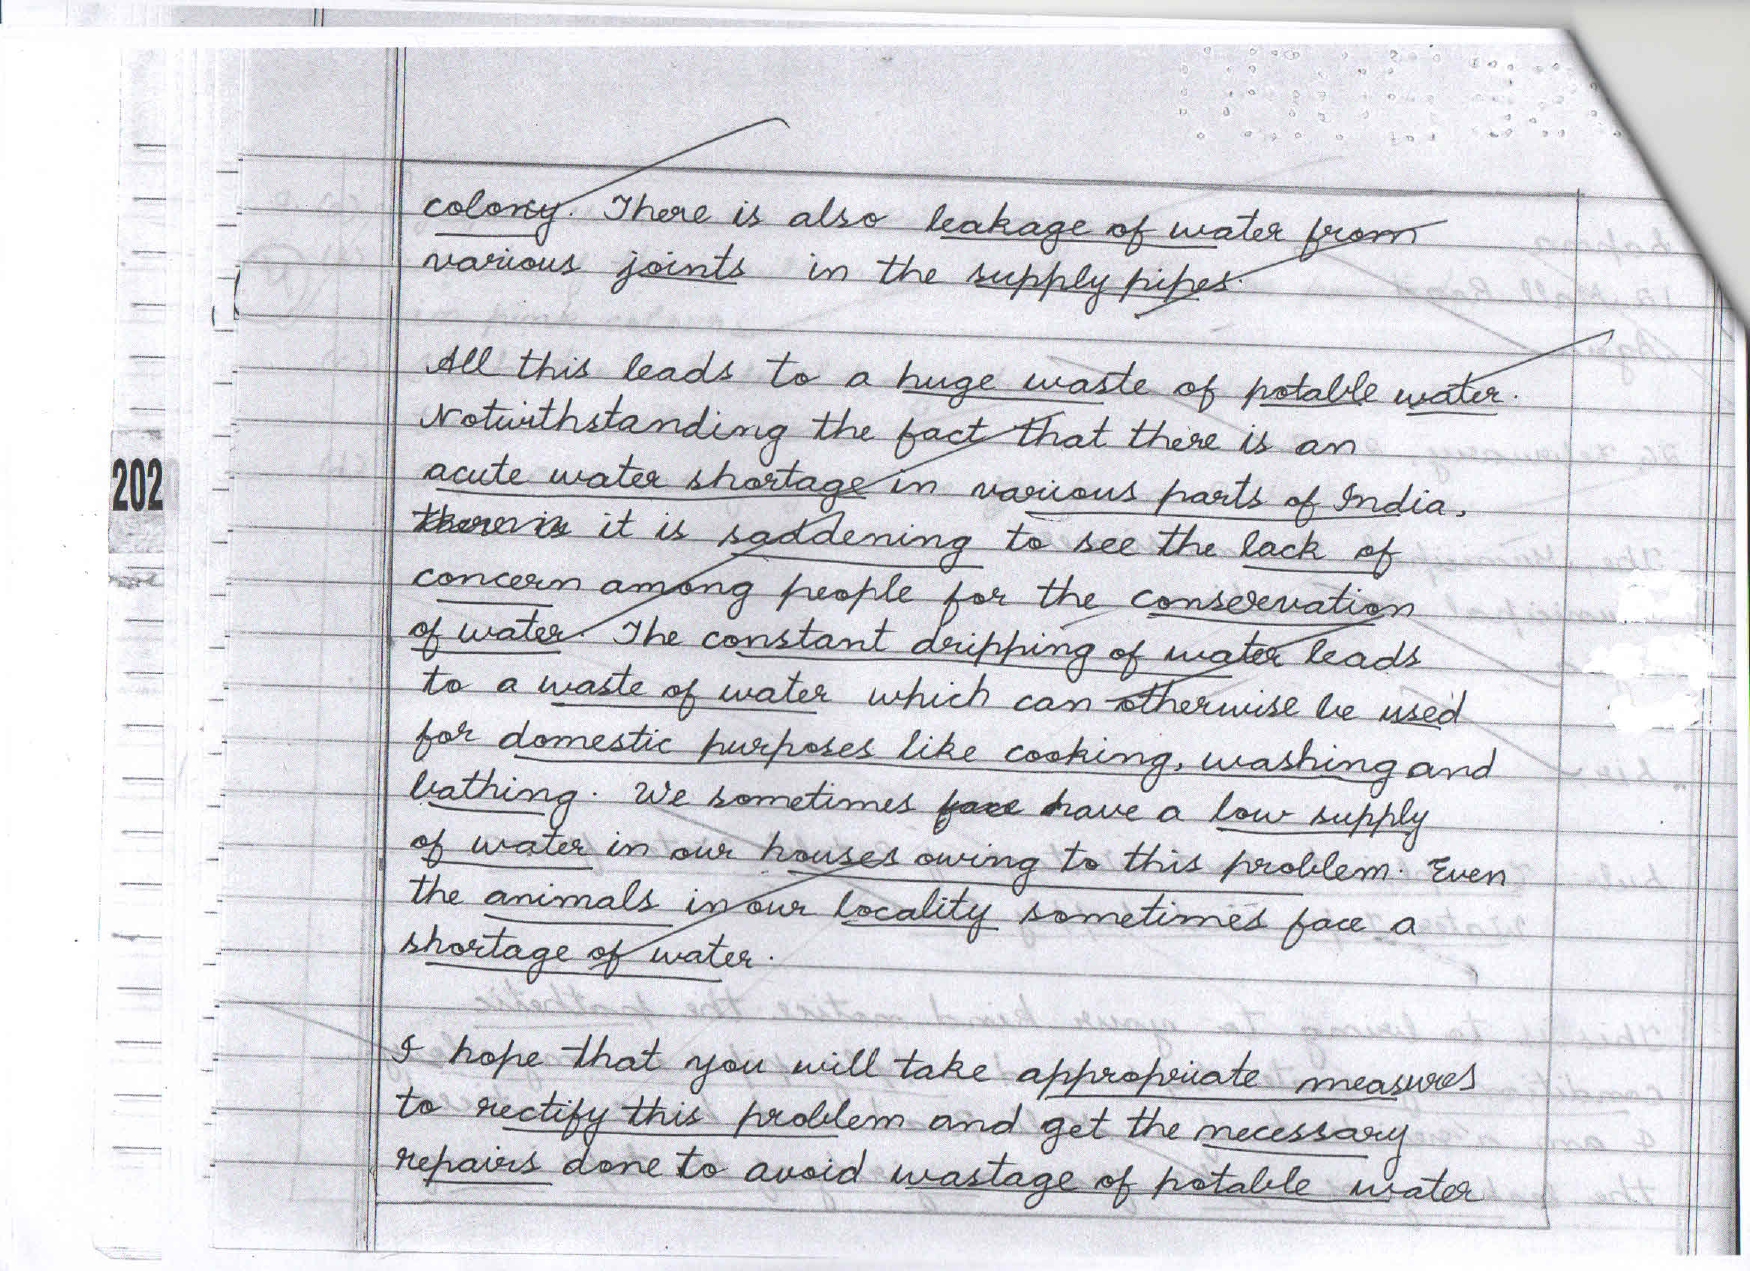 colony. There is also leakage of water from
various joints in the supply pipes.
All this leads to a huge waste of potable water.
Notwithstanding the fact that there is an
acute water shortage in various parts of India,
202
there is it is saddening to see the lack of
concern among people for the conservation
of water. The constant dripping of water leads
to a waste of water which can otherwise be used
for domestic purposes like cooking, washing and
bathing. We sometimes face have a low supply
of water in our houses owing to this problem. Even
the animals in our locality sometimes face a
shortage of water.
I hope that you will take appropriate measures
to rectify this problem and get the necessary
repairs done to avoid wastage of potable water